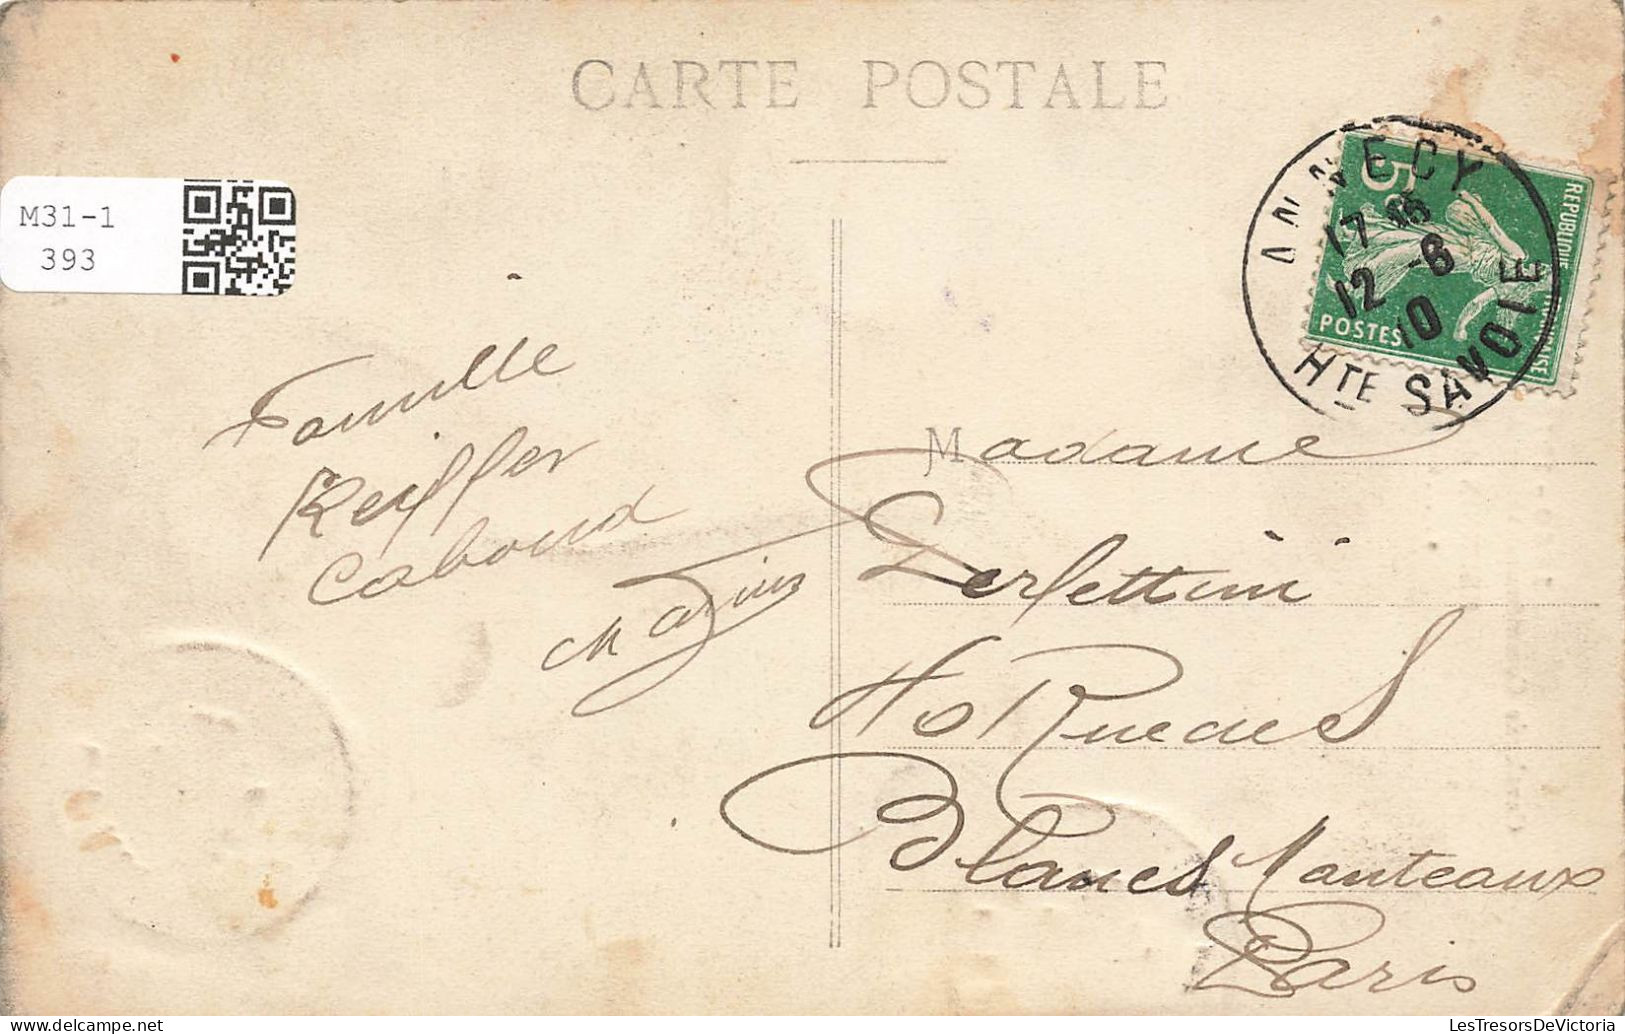 CARTE POSTALE
M31-1
393
ANNECY
17 15
12 -6
10
HTE SAVOIE
5c
REPUBLIQUE FRANCAISE
POSTES
Famille
Keiffer
Caboud
Marius
Madame
Perlettini
40 Rue des
Blancs Manteaux
Paris
LesTresorsDeVictoria